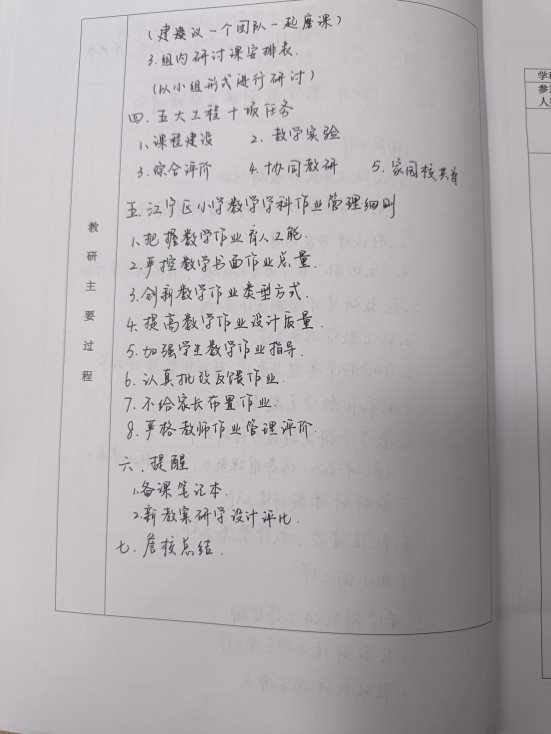 教研主要过程
(建议一个团队一起磨课)
3.组内研讨课安排表.
(以小组形式进行研讨)
四.五大工程十项任务
1.课程建设 2.数学实验
3.综合评价 4.协同教研 5.家园校共育
五.江宁区小学数学学科作业管理细则
1.把握数学作业育人功能.
2.严控数学书面作业总量.
3.创新数学作业类型方式.
4.提高数学作业设计质量.
5.加强学生数学作业指导.
6.认真批改反馈作业.
7.不给家长布置作业.
8.严格教师作业管理评价.
六.提醒
1.备课笔记本.
2.新教案研学设计评比.
七.总结.
学科
参加
人